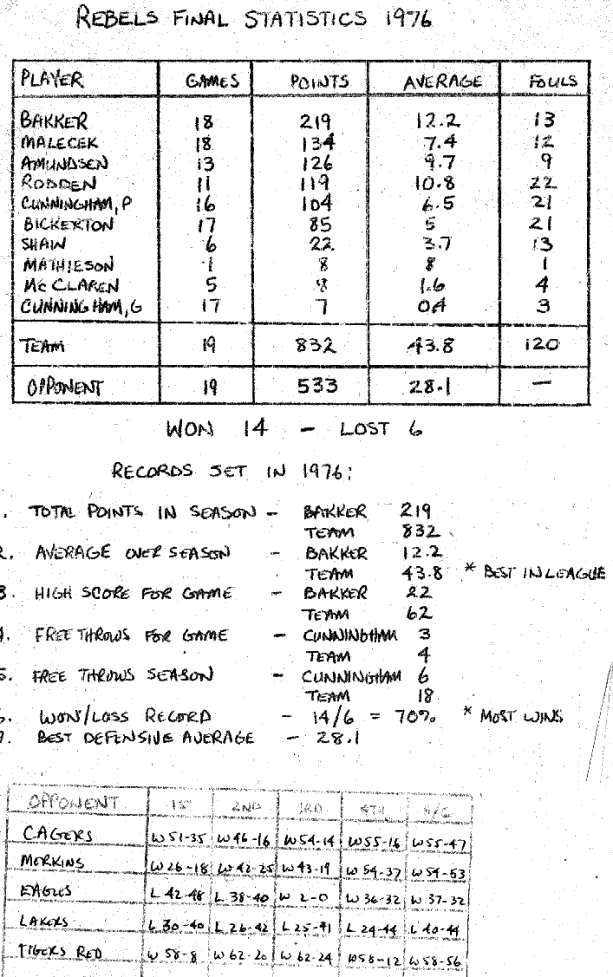 REBELS FINAL STATISTICS 1976
PLAYER GAMES POINTS AVERAGE FOULS
BAKKER 18 219 12.2 13
MALECEK 18 134 7.4 12
AMUNDSEN 13 126 9.7 9
RODDEN 11 119 10.8 22
CUNNINGHAM, P 16 104 6.5 21
BICKERTON 17 85 5 21
SHAW 6 22 3.7 13
MATHIESON 1 8 8 1
MC CLAREN 5 8 1.6 4
CUNNINGHAM, G 17 7 04 3
TEAM 19 832 43.8 120
OPPONENT 19 533 28.1 —
WON 14 - LOST 6
RECORDS SET IN 1976:
. TOTAL POINTS IN SEASON - BAKKER 219
TEAM 832
2. AVERAGE OVER SEASON - BAKKER 12.2
TEAM 43.8 * BEST IN LEAGUE
3. HIGH SCORE FOR GAME - BAKKER 22
TEAM 62
4. FREE THROWS FOR GAME - CUNNINGHAM 3
TEAM 4
5. FREE THROWS SEASON - CUNNINGHAM 6
TEAM 18
6. WON/LOSS RECORD - 14/6 = 70% * MOST WINS
7. BEST DEFENSIVE AVERAGE - 28.1
OPPONENT 1ST 2ND 3RD 4TH
CAGERS W 51-35 W 46-16 W 54-14 W 55-16 W 55-47
MERKINS W 26-18 W 42-25 W 43-19 W 54-37 W 54-53
EAGLES L 42-48 L 38-40 W 2-0 W 36-32 W 37-32
LAKERS L 30-40 L 26-42 L 25-41 L 24-44 L 40-44
TIGERS RED W 58-8 W 62-20 W 62-24 W 58-12 W 58-56